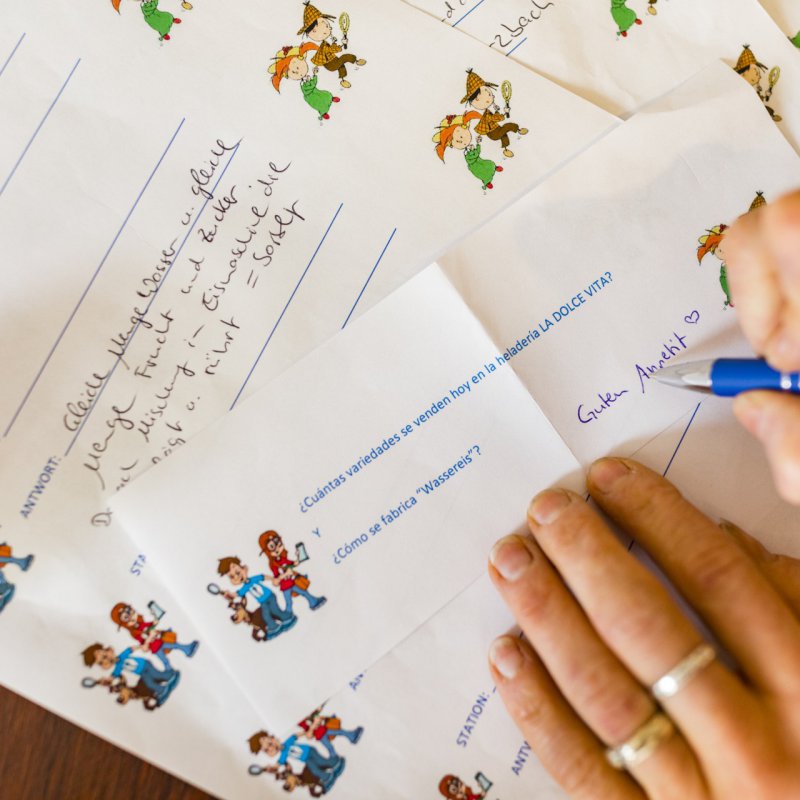 zbach
Gleiche Menge Wasser u. gleiche
Menge Frucht und Zucker
Mischung in Eismaschine die
u. rührt = Sorbet
ANTWORT:
¿Cuántas variedades se venden hoy en la heladería LA DOLCE VITA?
Y
¿Cómo se fabrica "Wassereis"?
Guten Appetit ♡
STA
STATION:
ANTW